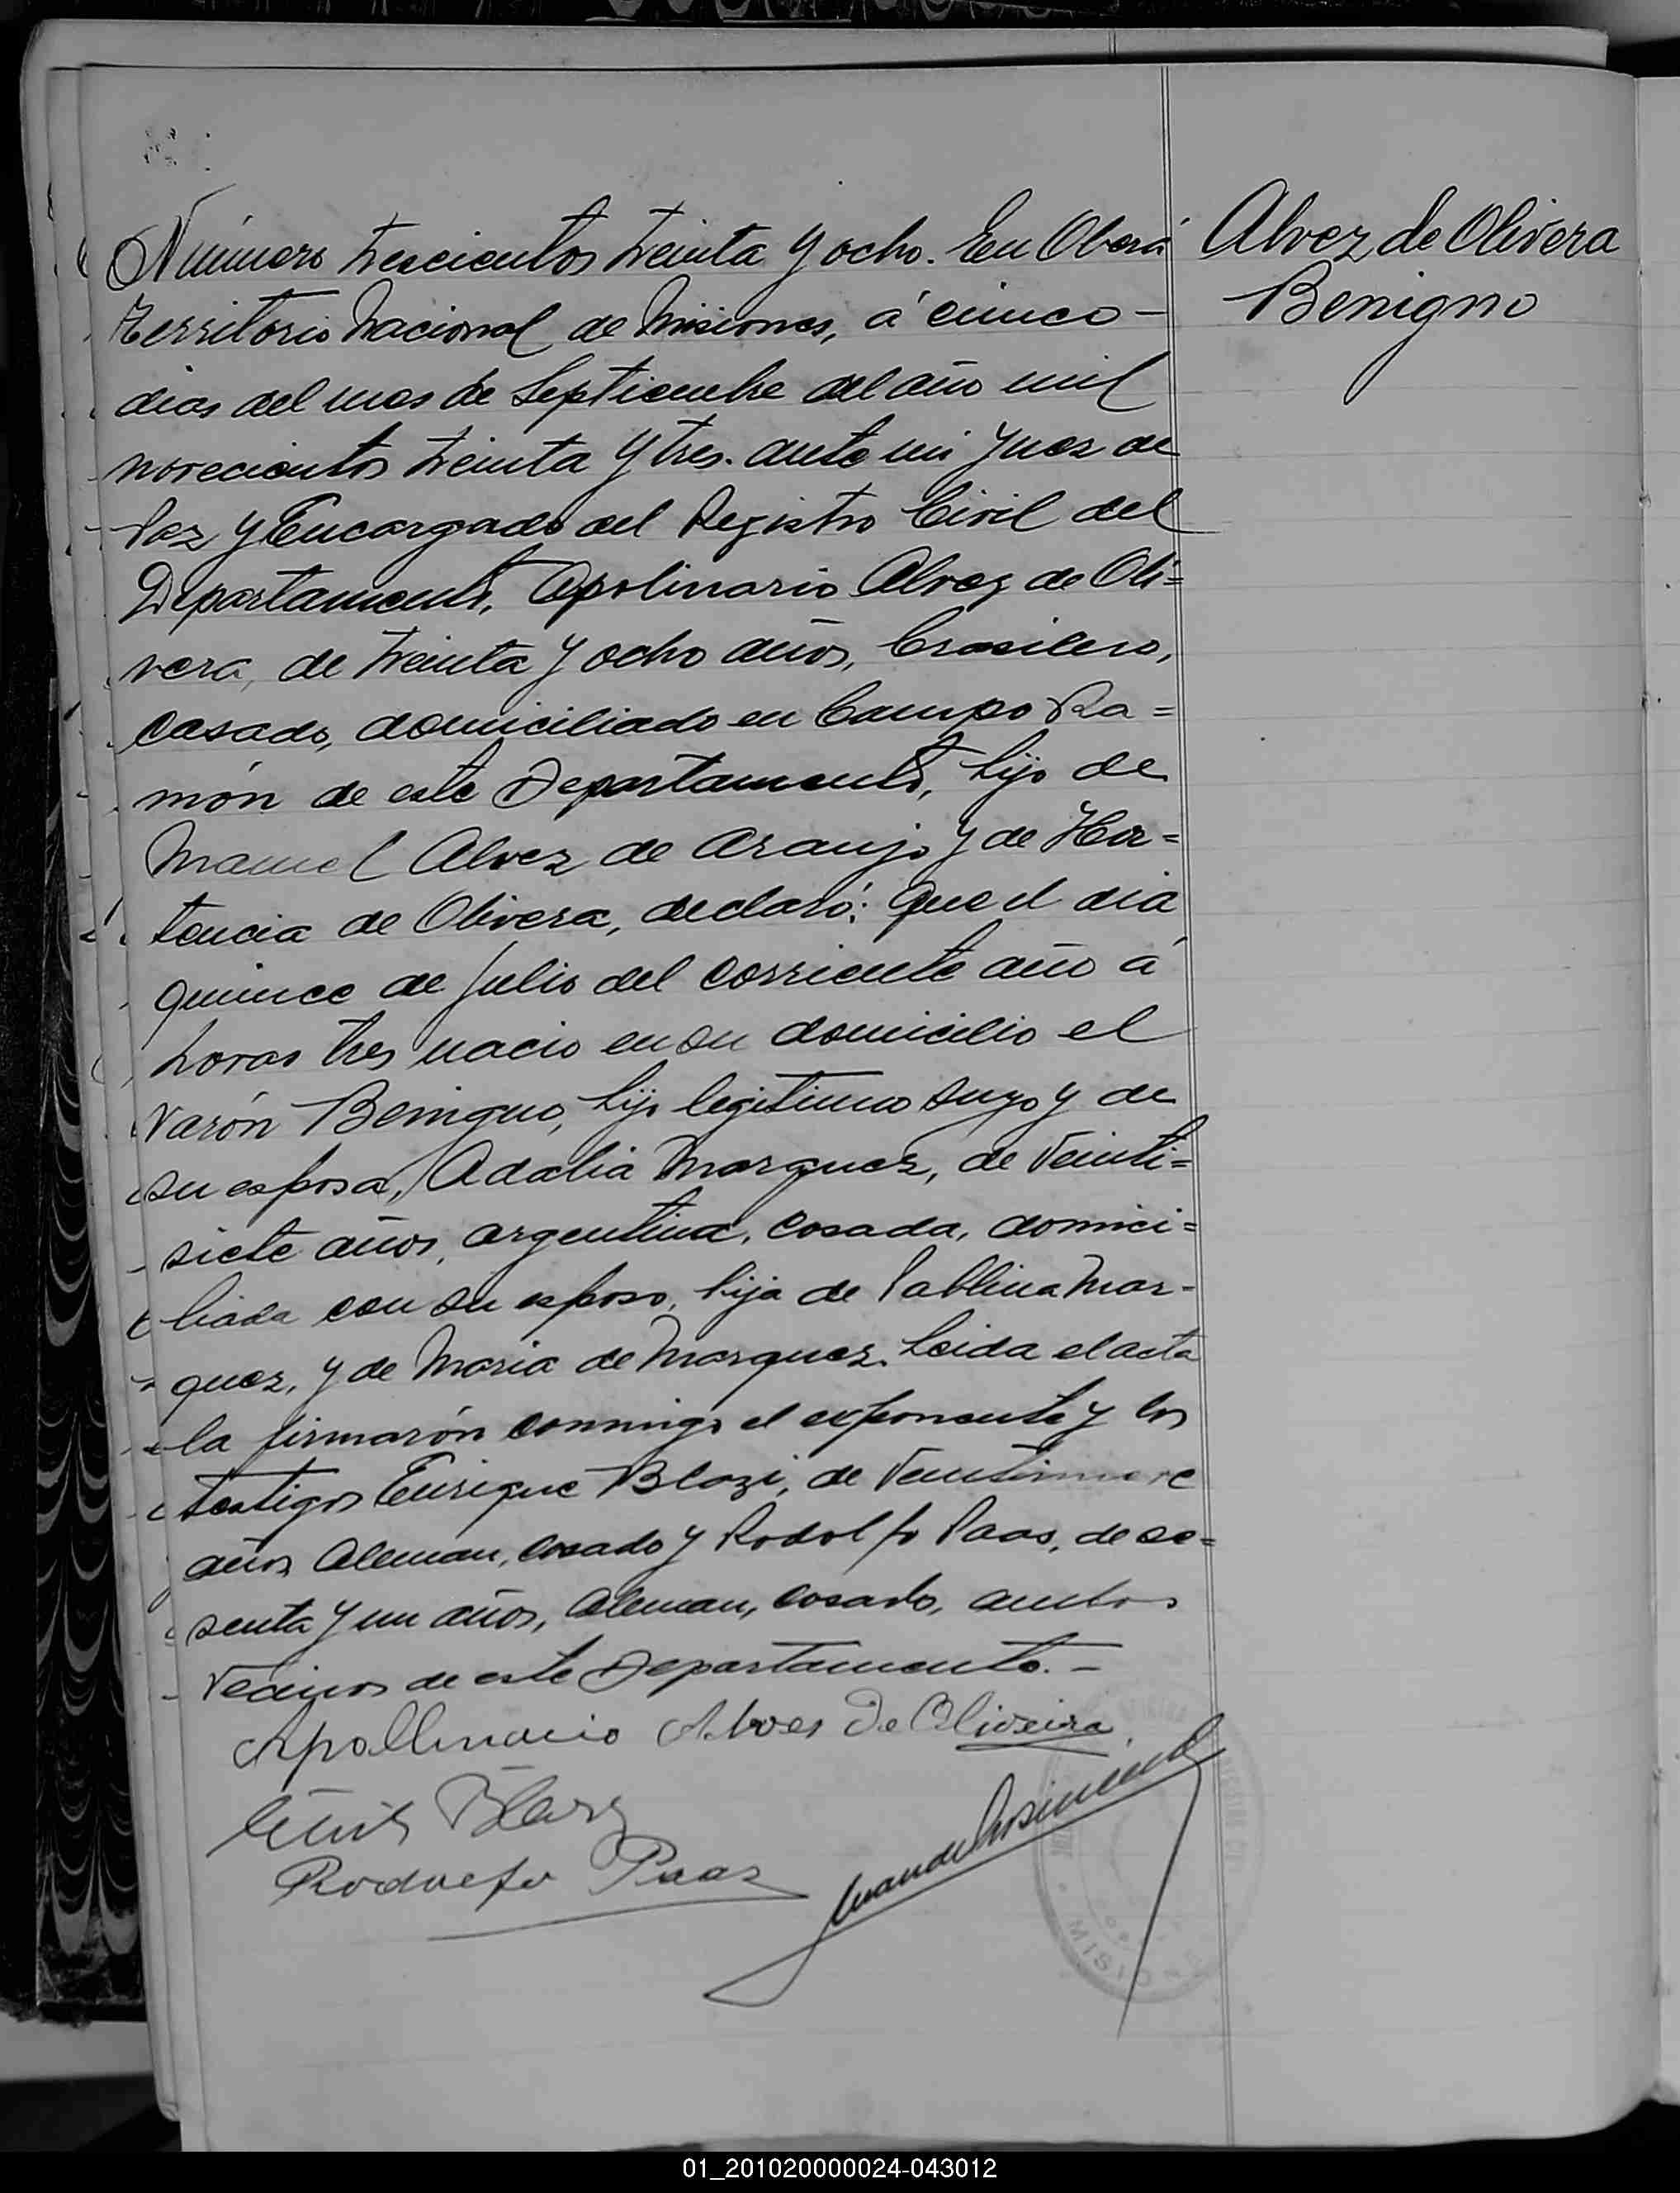 Número trescientos treinta y ocho. En Oberá
Alvez de Olivera
Benigno
Territorio Nacional de Misiones, á cinco -
dias del mes de Septiembre del año mil
novecientos treinta y tres. ante mi Juez de
Paz y Encargado del Registro Civil del
Departamento, Apolinario Alvez de Oli=
vera, de treinta y ocho años, brasilero,
casado, domiciliado en Campo Ra=
món de este Departamento, hijo de
Manuel Alvez de Araujo y de Hor=
tencia de Olivera, declaró: Que el dia
quince de Julio del corriente año á
horas tres nacio en su domicilio el
varón Benigno, hijo legitimo suyo y de
su esposa, Adalia Marquez, de veinti=
siete años, argentina, casada, domici=
liada con su esposo, hija de Pablina Mar-
quez, y de Maria de Marquez. Leida el acta
la firmarón conmigo el exponente y los
testigos Enrique Blazi, de veintinueve
años, Aleman, casado y Rodolfo Paas, de se=
senta y un años, Aleman, casado, ambos
vecinos de este Departamento. -
Apollinario Alves De Oliveira
Rodolfo Paas
MISIO
01_201020000024-043012